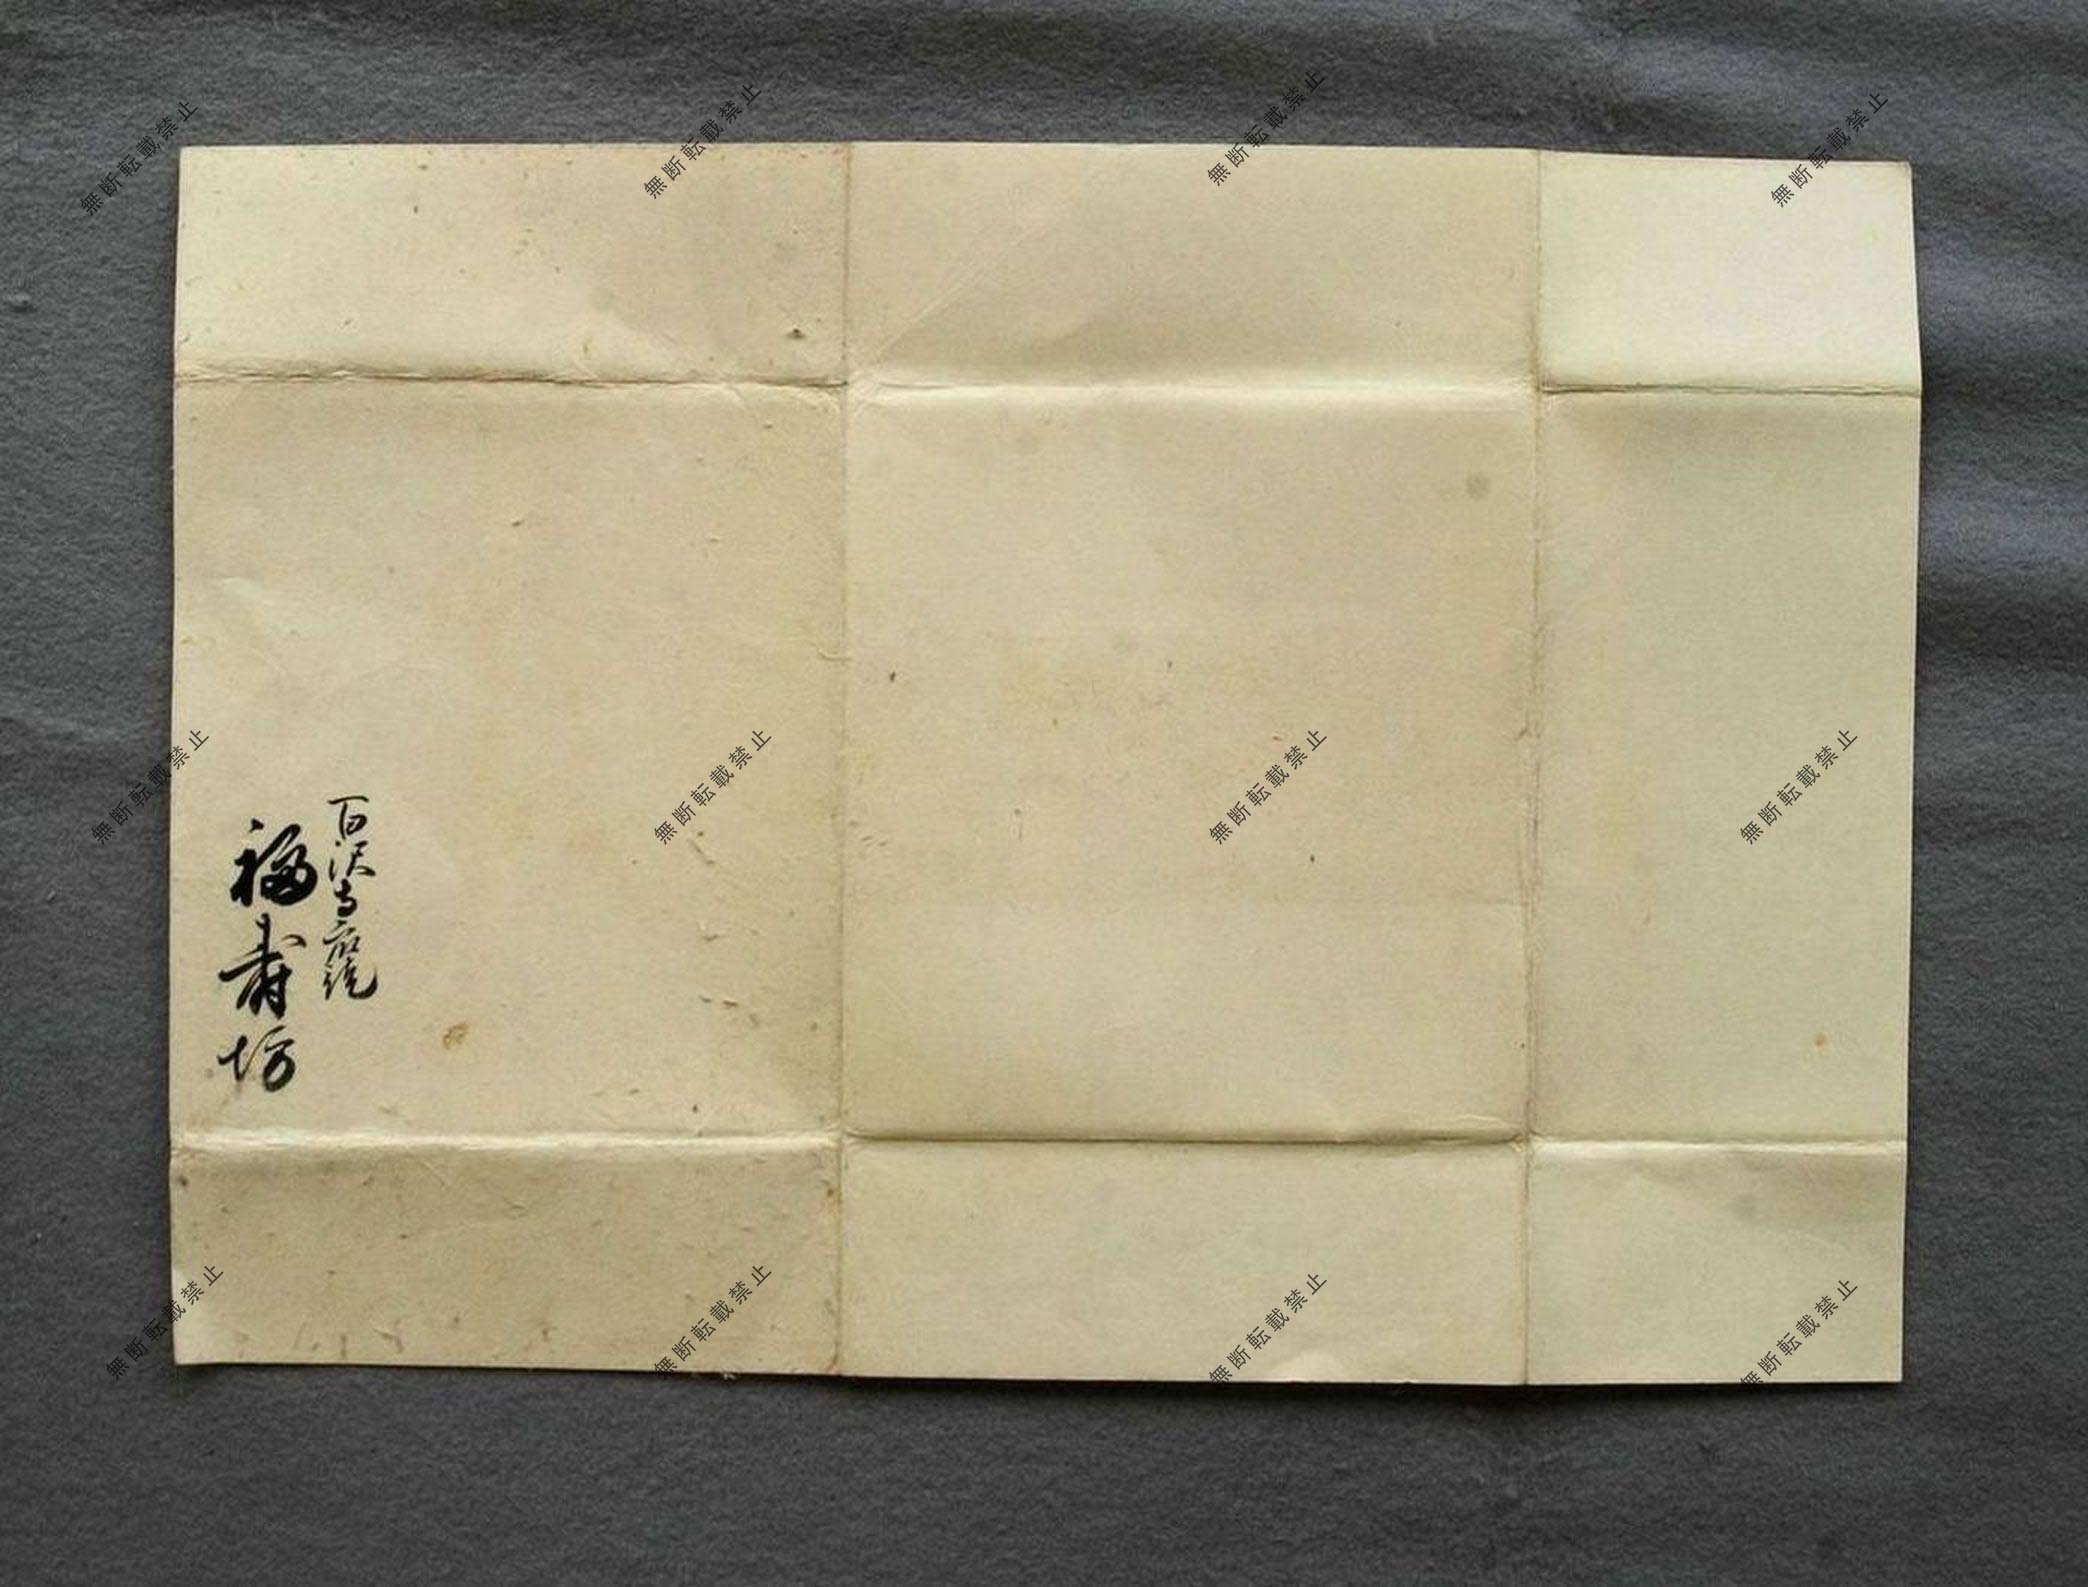 百沢寺衆徒
福寿坊
無断転載禁止
無断転載禁止
無断転載禁止
無断転載禁止
無断転載禁止
無断転載禁止
無断転載禁止
無断転載禁止
無断転載禁止
無断転載禁止
無断転載禁止
無断転載禁止